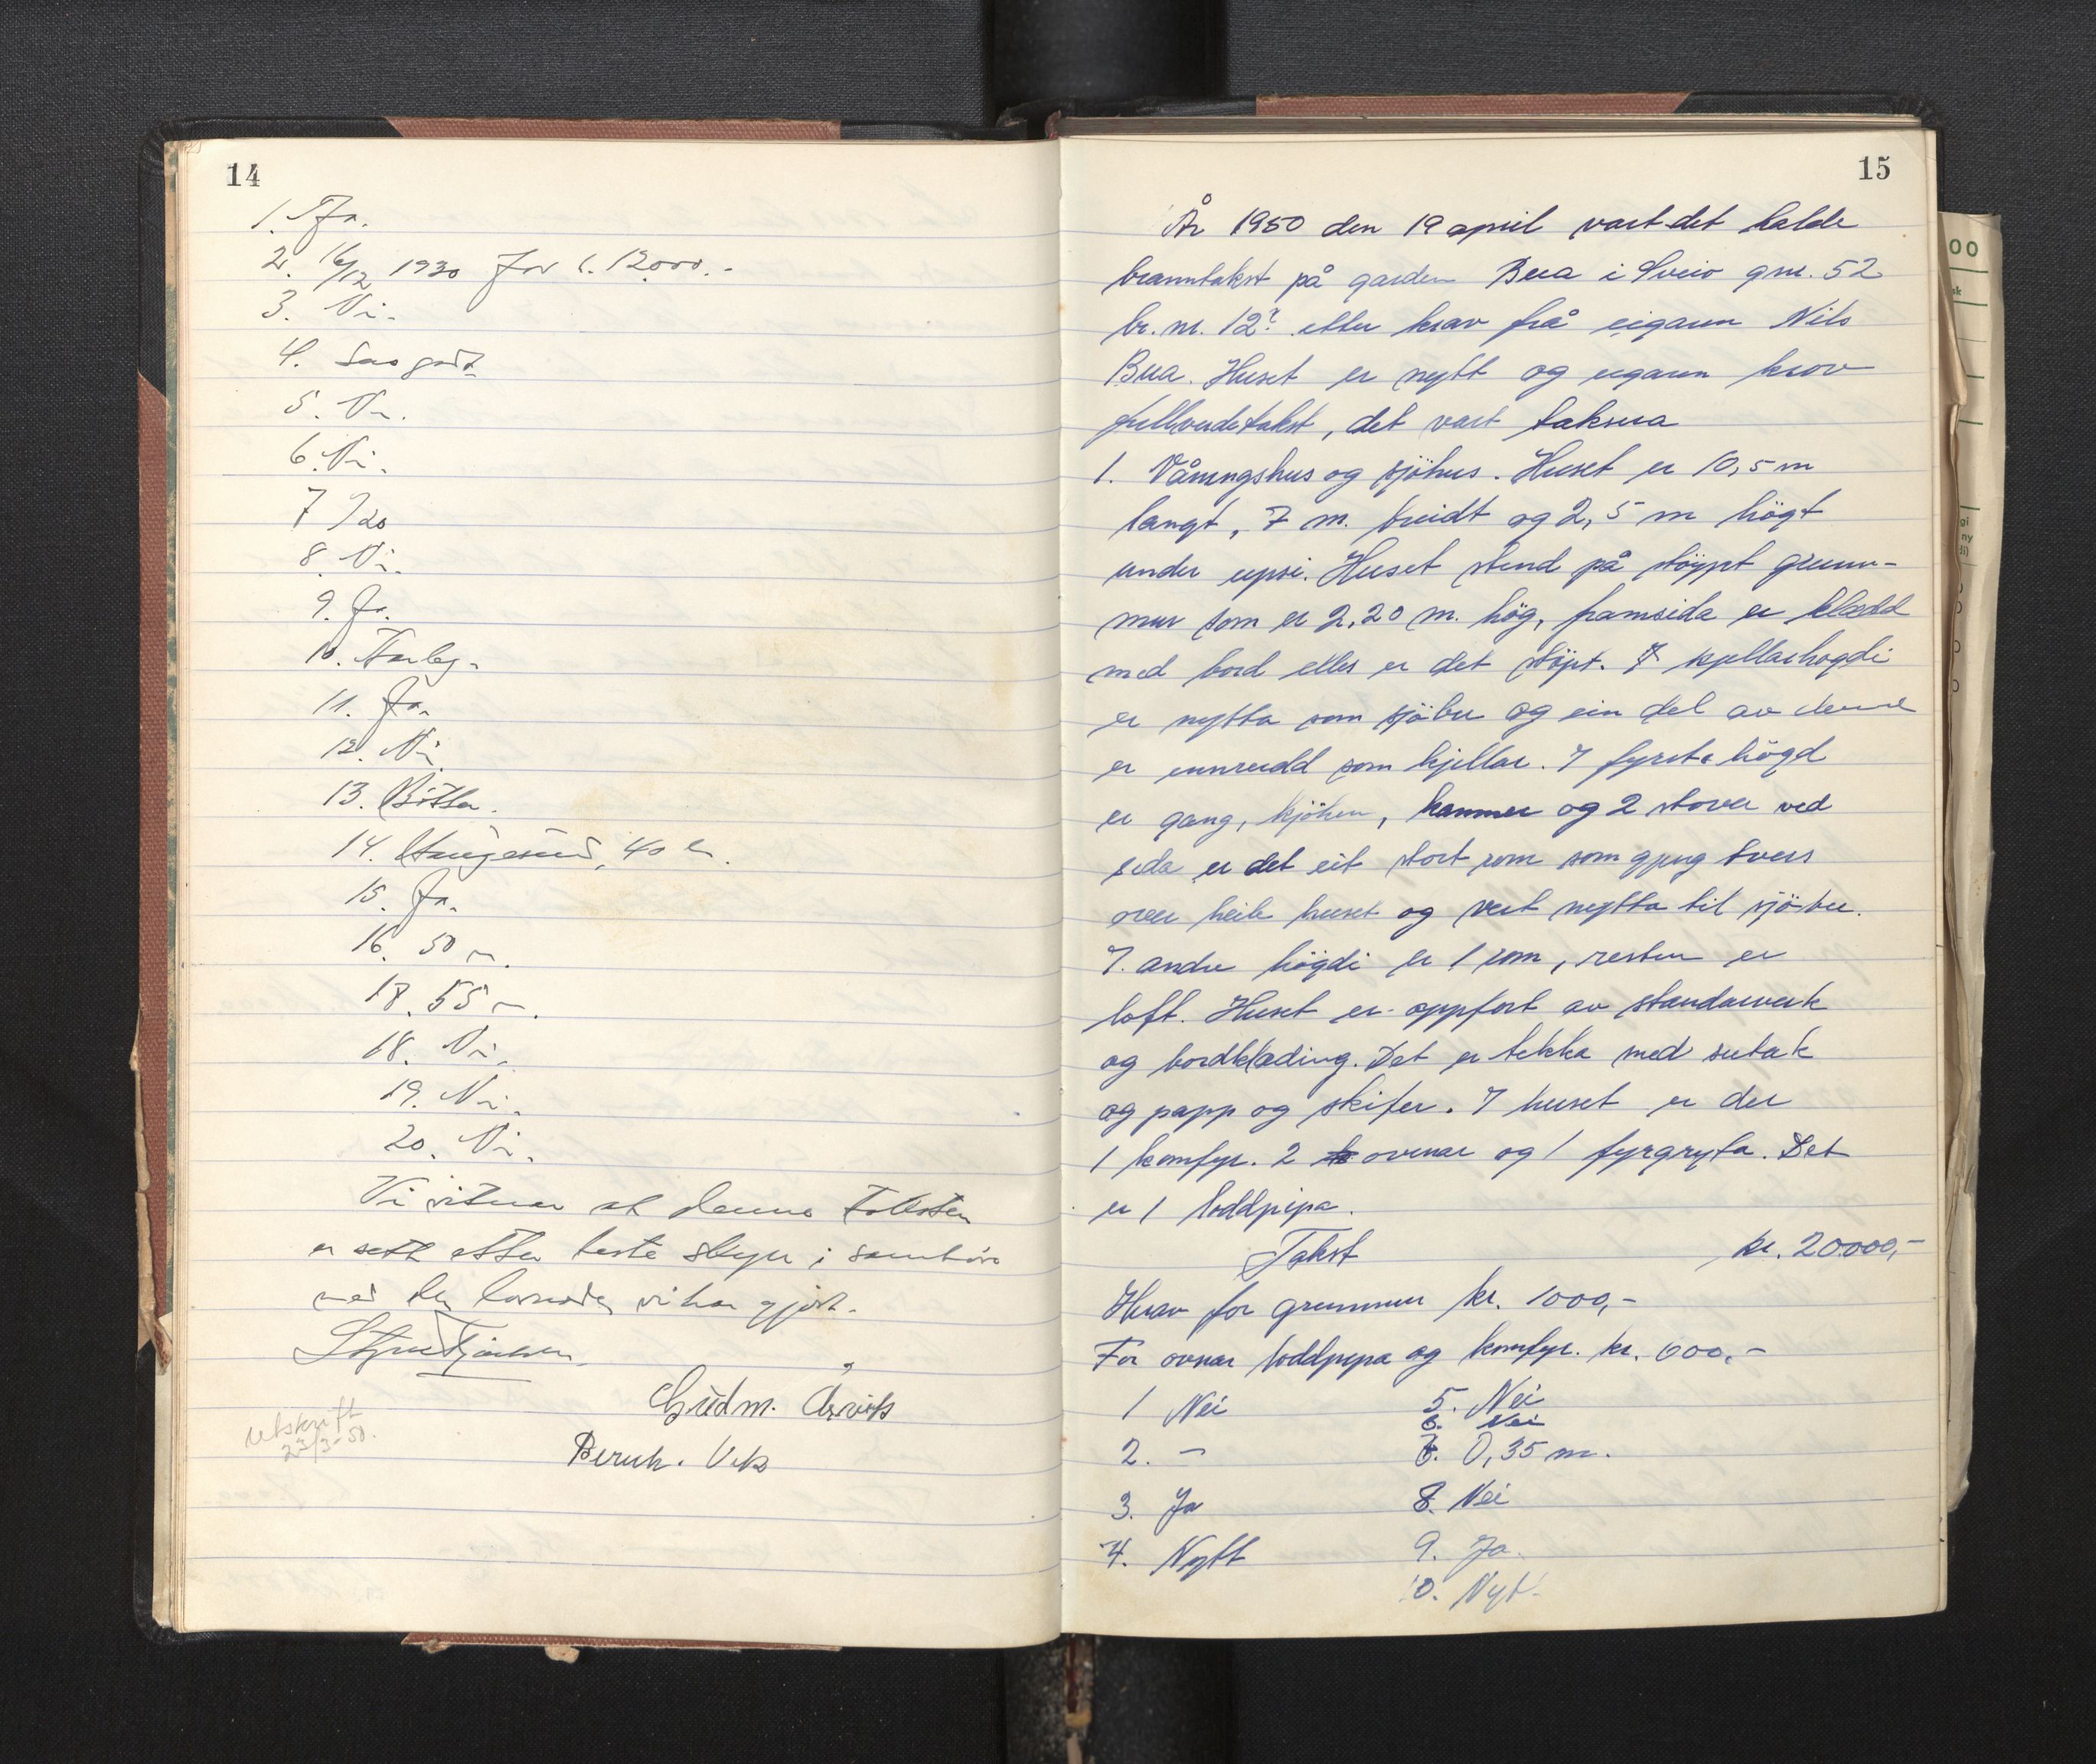 14
1. Ja.
2. 16/12 1930 for kr. 12000.-
3. Nei.
4. Svo godt
5. Nei.
6. Nei.
7
8. Nei.
9. Ja.
10. Farleg.
11. Ja.
12. Nei.
13. Bøtter.
14. Haugesund, 40 km.
15. Ja.
16. 50 m.
17. 55 m.
18. Nei.
19. Nei.
20. Nei.
Vi vitnar at denne taksten
er sett etter beste skyn i samhøve
med den kornoden vi har gjort.
Gudm. Årvik
Bernh. Vik
Utskrift
23/3-50.
15
År 1950 den 19 april vart det halde
branntakst på garden Bua i Sveio gnr. 52
br. nr. 12? etter krav frå eigaren Nils
Bua. Huset er nytt og eigaren krov
fullverdetakst, det vart taksera
1. Våningshus og sjöhus. Huset er 10,5 m
langt, 7 m. breidt og 2,5 m högt
under upsi. Huset stend på stöypt grunn-
mur som er 2,20 m. hög, framsida er klædd
med bord elles er det stöpt. I kjellarhogdi
er nytta som sjöbu og ein del av denne
er innreidd som kjellar. I fyrste högd
er gang, kjöken, kammer og 2 stover ved
sida er det eit stort rom som gjeng tvers
over heile huset og vert nytta til sjöbu.
I. andre högdi er 1 rom, resten er
loft. Huset er oppfört av standarverk
og bordklæding. Det er tekka med sutak
og papp og skifer. I huset er der
1 komfyr. 2 ovnar og 1 fyrgryta. Det
er 1 loddpipa.
Takst kr. 20000,-
Herav for grunnmur kr. 1000,-
For ovnar loddpipa og komfyr. kr. 600.-
1 Nei 5. Nei
6. Nei
2. - 7. 0,35 m.
3. Ja 8. Nei
4. Nytt 9. Ja.
10. Nytt